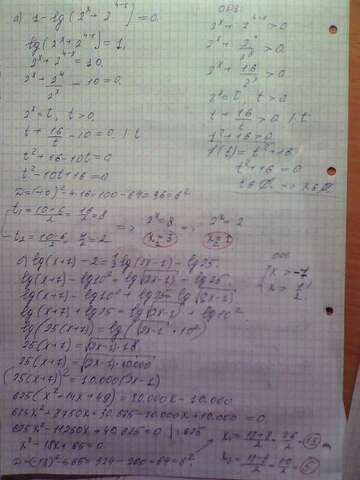 а) 1 - lg(2ˣ + 2⁴⁻ˣ) = 0.
lg(2ˣ + 2⁴⁻ˣ) = 1,
2ˣ + 2⁴⁻ˣ = 10,
2ˣ + 2⁴/2ˣ - 10 = 0.
2ˣ = t, t > 0.
t + 16/t - 10 = 0. | t
t² + 16 - 10t = 0
t² - 10t + 16 = 0
D = (-10)² - 4·16 = 100 - 64 = 36 = 6².
t₁ = (10+6)/2 = 16/2 = 8
t₂ = (10-6)/2 = 4/2 = 2
=> 2ˣ = 8 2ˣ = 2
x₁ = 3 x₂ = 1
ОДЗ:
2ˣ + 2⁴⁻ˣ > 0
2ˣ + 2⁴/2ˣ > 0.
2ˣ + 16/2ˣ > 0
2ˣ = t, t > 0
t + 16/t > 0 | t
t² + 16 > 0
f(t) = t² + 16
t² + 16 = 0
lg(x+7) - 2 = ½ lg(2x-1) - lg25.
lg(x+7) - lg10² = lg√(2x-1) - lg25
lg(x+7) - lg10² + lg25 = lg√(2x-1)
lg(x+7) + lg25 = lg√(2x-1) + lg10²
lg(25(x+7)) = lg(√(2x-1)·10²)
25(x+7) = √(2x-1)·10²
25(x+7) = √(2x-1)·10.000
(25(x+7))² = 10.000(2x-1)
625(x² + 14x + 49) = 20.000x - 10.000
625x² - 11250x + 40.625 = 0 | :625
x² - 18x + 65 = 0
D = (-18)² - 4·65 = 324 - 260 = 64 = 8².
ОДЗ
x > -7
x > 1/2
x₁ = (18+8)/2 = 26/2 = 13
x₂ = (18-8)/2 = 10/2 = 5